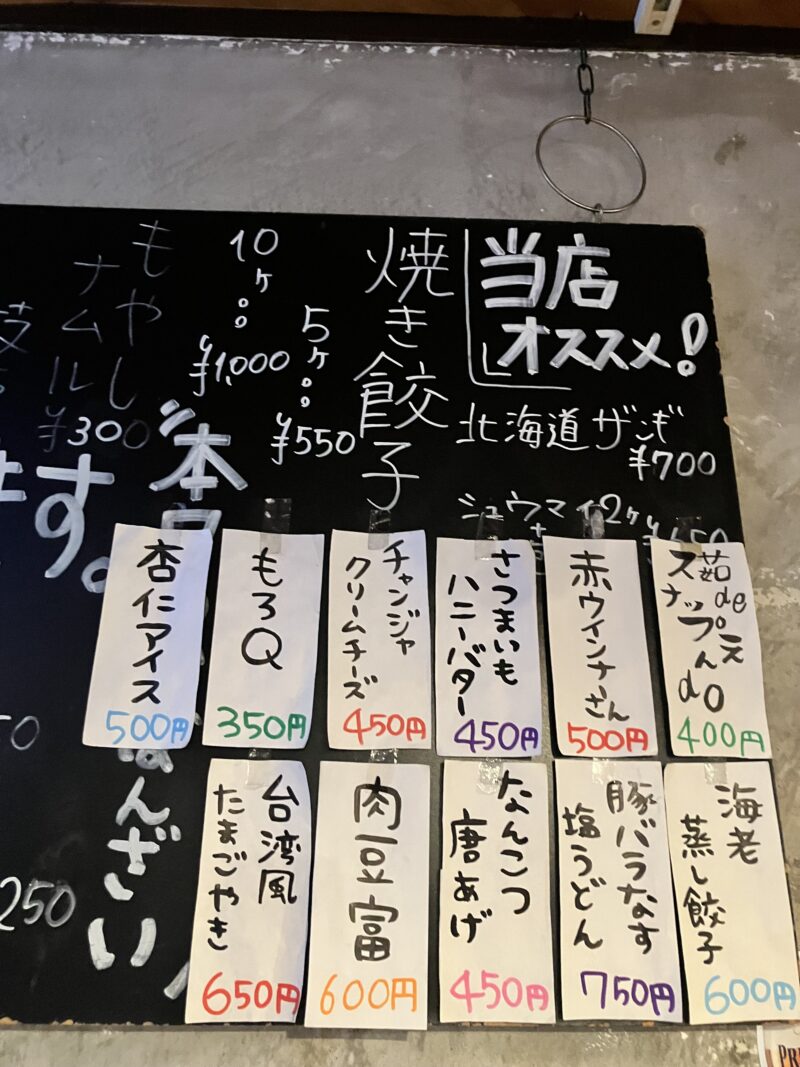 当店
オススメ!
北海道ザンギ
¥700
シュウマイ2ヶ
焼き餃子
5ヶ
¥550
10ヶ
¥1,000
もやし
ナムル
¥300
す。
本
なんざい
250
茹de
スナップえんdo
400円
赤ウインナーさん
500円
さつまいも
ハニーバター
450円
チャンジャ
クリームチーズ
450円
もろQ
350円
杏仁アイス
500円
海老
蒸し餃子
600円
豚バラなす
塩うどん
750円
なんこつ
唐あげ
450円
肉豆富
600円
台湾風
たまごやき
650円